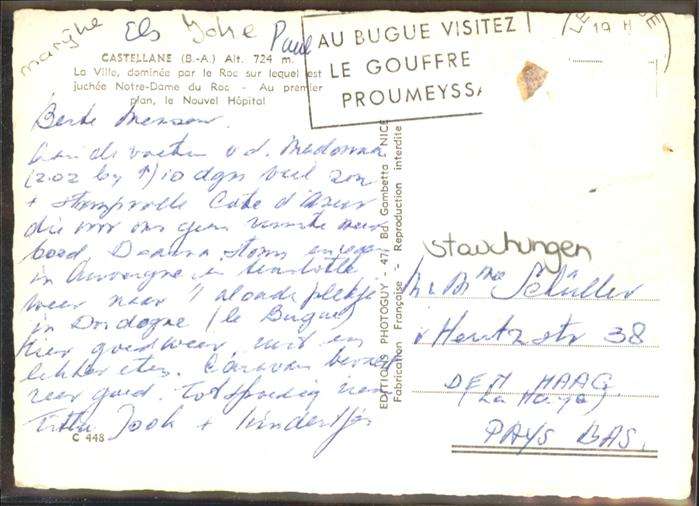 marijke Els Joke Paul
CASTELLANE (B.-A.) Alt. 724 m.
La Ville, dominée par le Roc sur lequel est
juchée Notre-Dame du Roc - Au premier
plan, le Nouvel Hôpital
AU BUGUE VISITEZ
LE GOUFFRE
PROUMEYSSA
19 H
Beste Mensen.
Aan de voeten v d. Madonna
10 dgn veel zon
+ Côte d'Azur
die voor ons geen meer
bood Daarna
in Auvergne en
weer naar 't aloude plekje
in Dordogne (le Bugue)
Hier goed weer, rust en
lekker eten. Caravan
zeer goed. Tot spoedig
Jook + kindertjes
C 448
EDITIONS PHOTOGUY - 47, Bd Gambetta - NICE
Fabrication Française - Reproduction interdite
stauchungen
Mr Mme Schüller
Heutzstr 38
DEN HAAG.
(La Haye)
PAYS BAS.